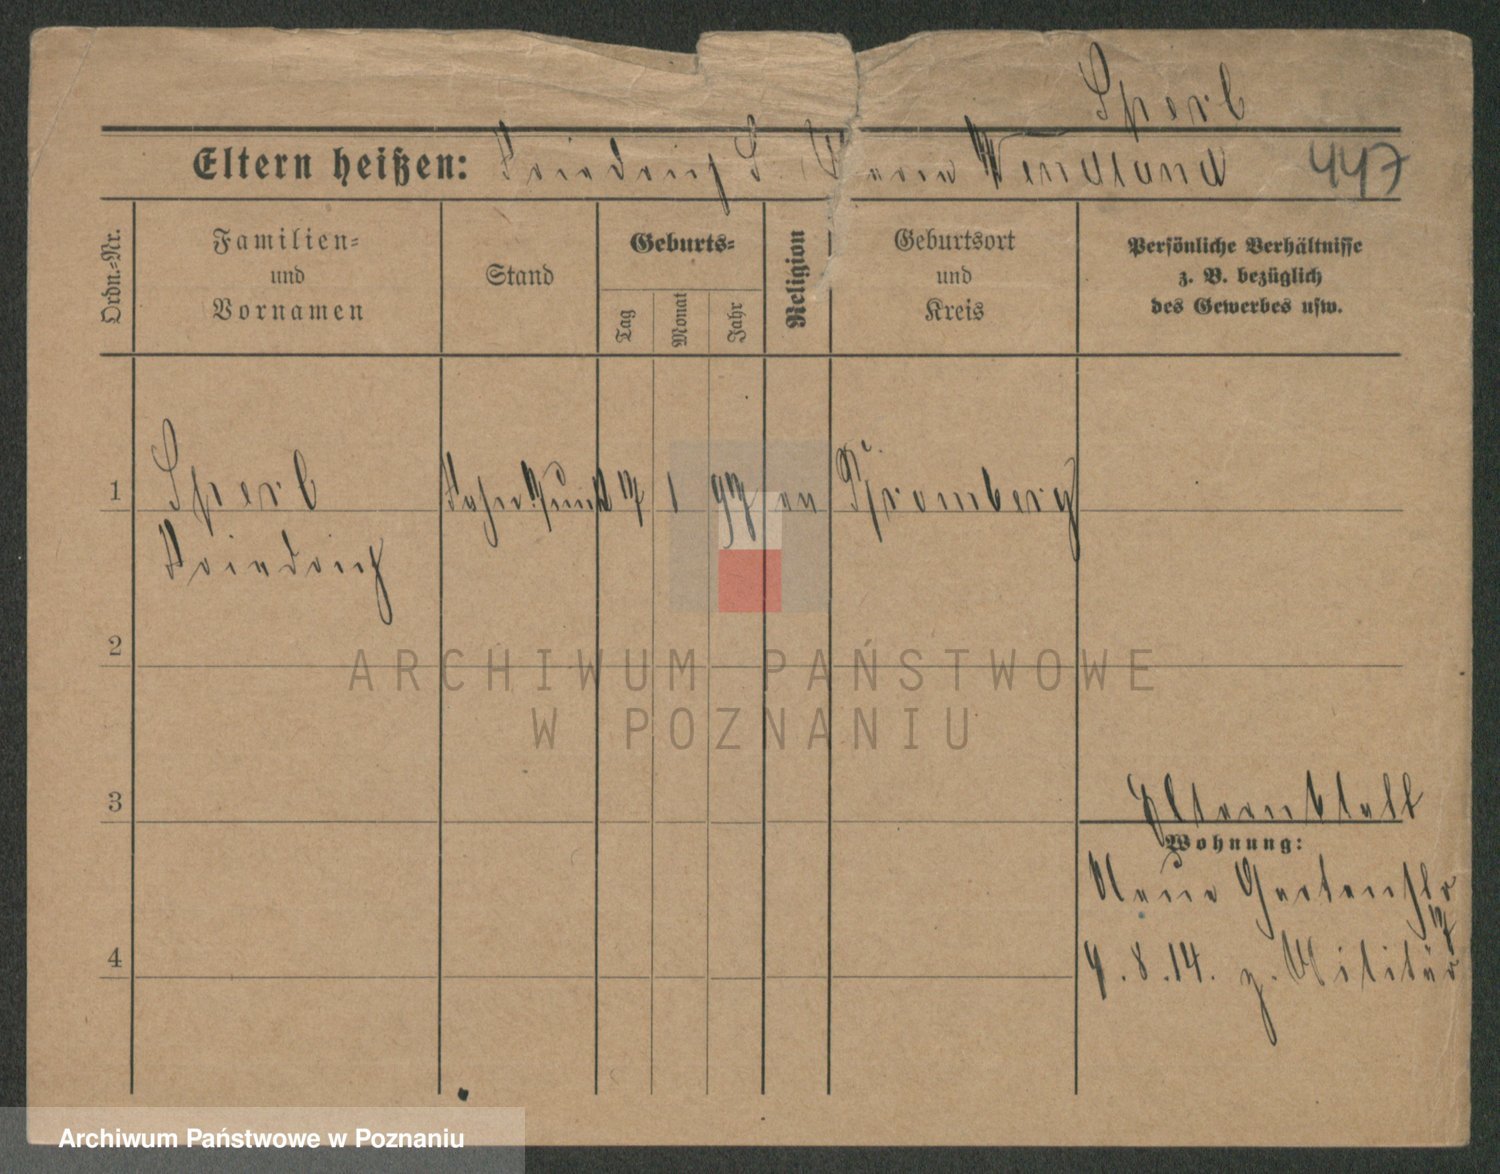 Sperb
Eltern heißen: Friedrich S. Maria Wendland 447
Ordn.-Nr.
Familien-
und
Vornamen
Stand
Geburts-
Tag
Monat
Jahr
Religion
Geburtsort
und
Kreis
Persönliche Verhältnisse
z. B. bezüglich
des Gewerbes usw.
1 Sperb 1 97 ev Bromberg
Friedrich
2
ARCHIWUM PAŃSTWOWE
W POZNANIU
3
Wohnung:
Neue Gartenstr
4
9.8.14. z. Militär
Archiwum Państwowe w Poznaniu